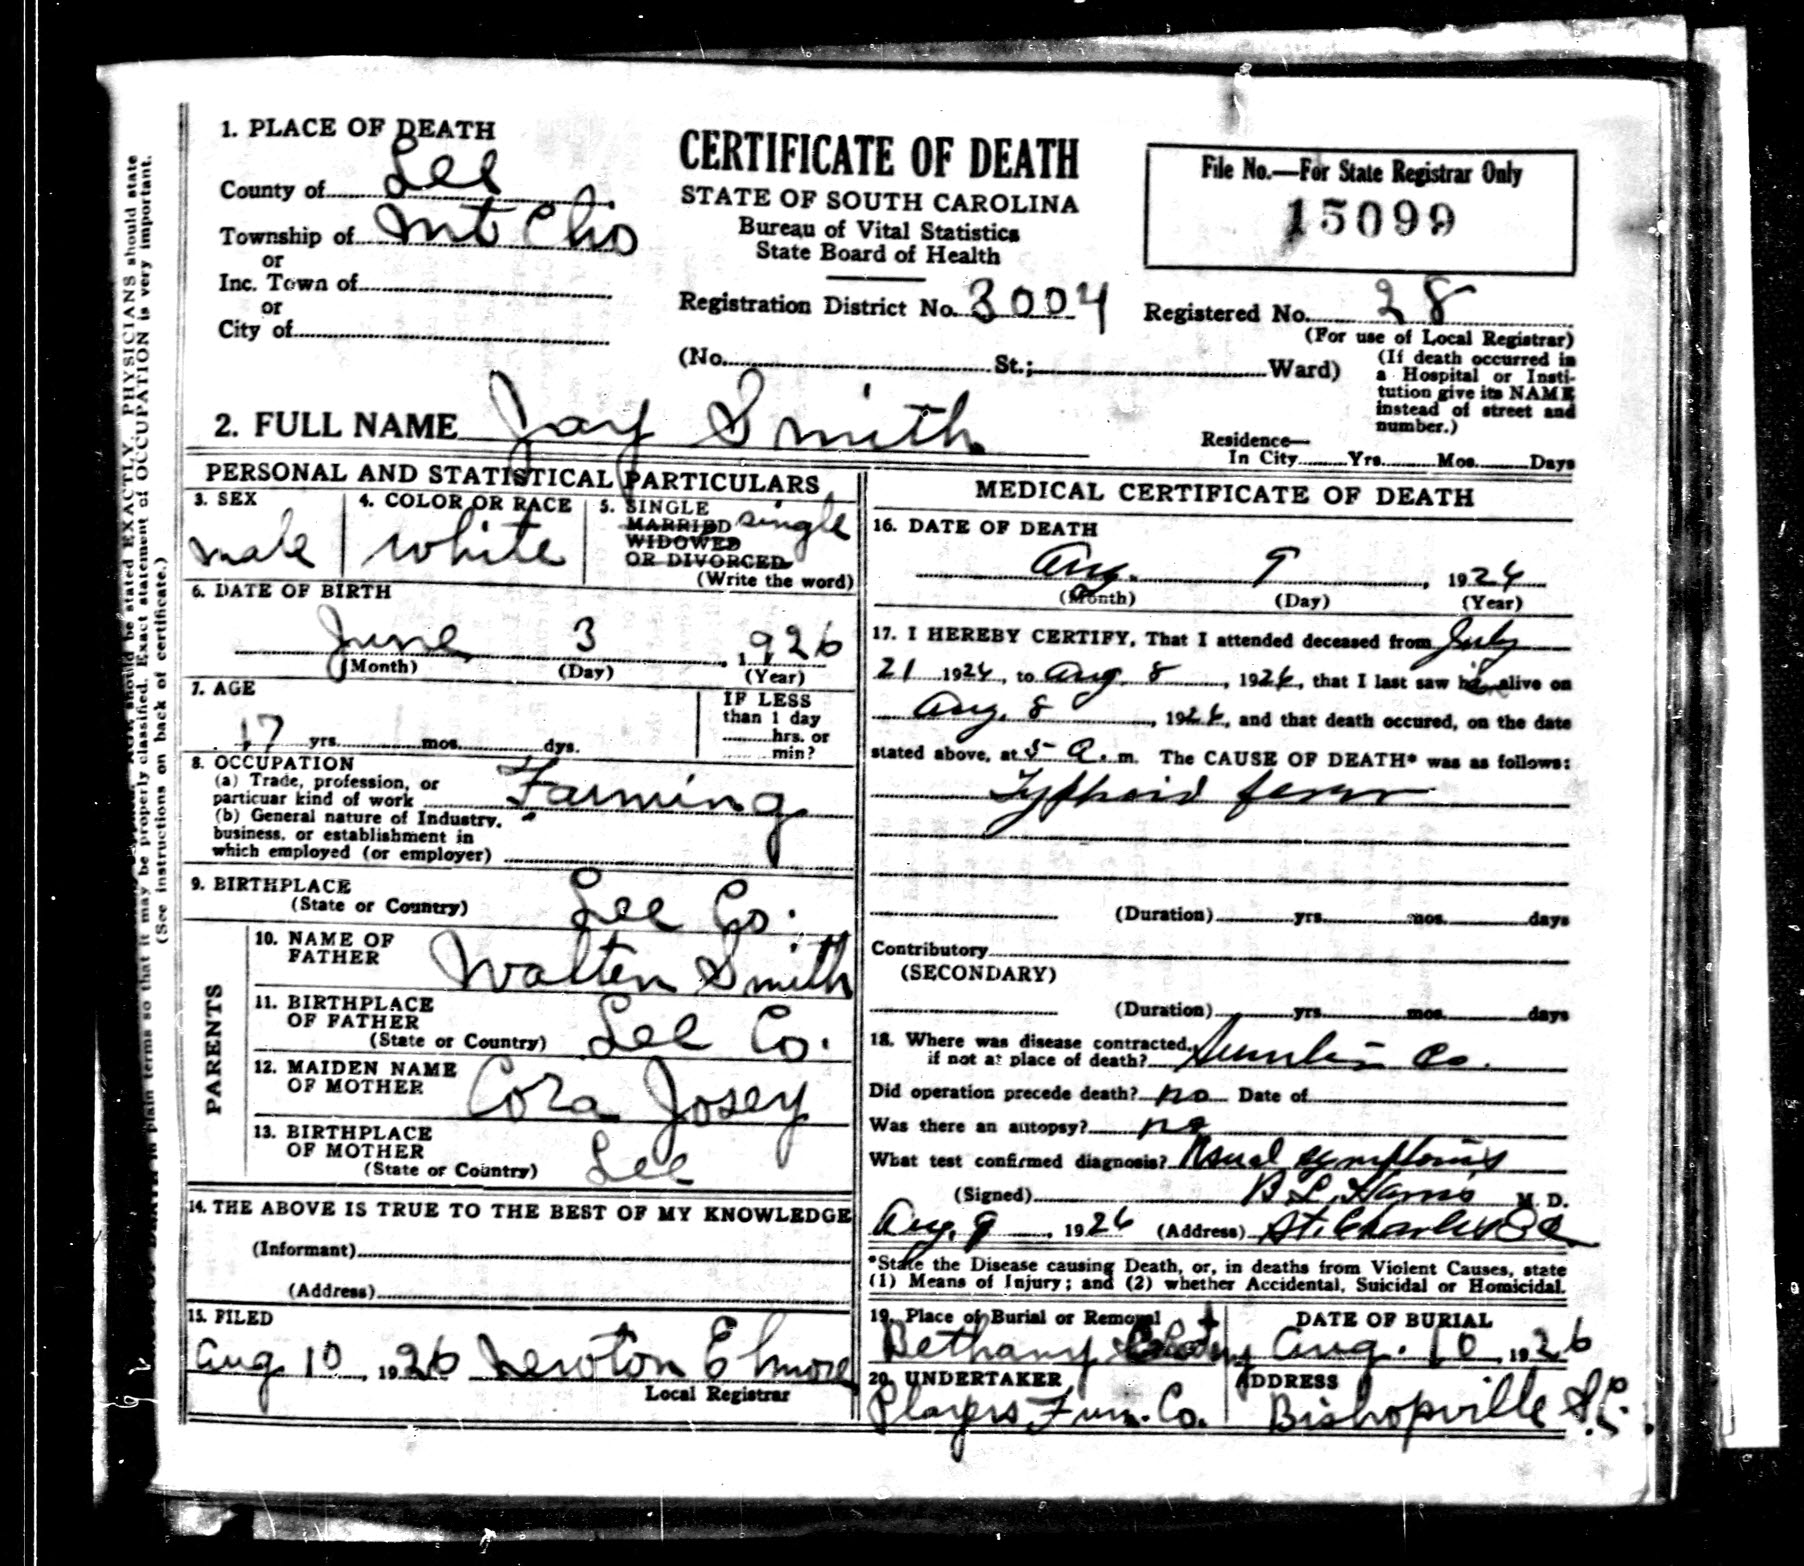 1. PLACE OF DEATH
County of Lee
Township of Mt Clio
or
Inc. Town of
or
City of
CERTIFICATE OF DEATH
STATE OF SOUTH CAROLINA
Bureau of Vital Statistics
State Board of Health
Registration District No. 3004
(No. St.; Ward)
File No.—For State Registrar Only
15099
Registered No. 28
(For use of Local Registrar)
(If death occurred in
a Hospital or Insti-
tution give its NAME
instead of street and
number.)
2. FULL NAME Jay Smith
Residence—
In City Yrs. Mos. Days
PERSONAL AND STATISTICAL PARTICULARS
3. SEX
male
4. COLOR OR RACE
white
5. SINGLE
MARRIED single
WIDOWED
OR DIVORCED
(Write the word)
6. DATE OF BIRTH
June 3, 1926
(Month) (Day) (Year)
7. AGE
17 yrs. mos. dys.
IF LESS
than 1 day
hrs. or
min?
8. OCCUPATION
(a) Trade, profession, or
particuar kind of work Farming
(b) General nature of Industry,
business, or establishment in
which employed (or employer)
9. BIRTHPLACE
(State or Country) Lee Co.
PARENTS
10. NAME OF
FATHER Walter Smith
11. BIRTHPLACE
OF FATHER
(State or Country) Lee Co.
12. MAIDEN NAME
OF MOTHER Cora Josey
13. BIRTHPLACE
OF MOTHER
(State or Country) Lee
14. THE ABOVE IS TRUE TO THE BEST OF MY KNOWLEDGE
(Informant)
(Address)
15. FILED
Aug 10, 1926 Newton Elmore
Local Registrar
MEDICAL CERTIFICATE OF DEATH
16. DATE OF DEATH
Aug. 9, 1926
(Month) (Day) (Year)
17. I HEREBY CERTIFY, That I attended deceased from July
21 1926, to Aug. 8, 1926, that I last saw him alive on
Aug. 8, 1926, and that death occured, on the date
stated above, at 5 a. m. The CAUSE OF DEATH* was as follows:
Typhoid fever
(Duration) yrs. mos. days
Contributory
(SECONDARY)
(Duration) yrs. mos. days
18. Where was disease contracted,
if not at place of death? Sumter Co.
Did operation precede death? no Date of
Was there an autopsy? no
What test confirmed diagnosis? Usual symptoms
(Signed) B L. Harris M. D.
Aug. 9, 1926 (Address) St. Charles S C
*State the Disease causing Death, or, in deaths from Violent Causes, state
(1) Means of Injury; and (2) whether Accidental, Suicidal or Homicidal.
19. Place of Burial or Removal
Bethany
DATE OF BURIAL
Aug. 10, 1926
20. UNDERTAKER
Players Fun. Co.
ADDRESS
Bishopville S.C.
should be stated EXACTLY. PHYSICIANS should state
in plain terms so that it may be properly classified. Exact statement of OCCUPATION is very important.
(See instructions on back of certificate.)